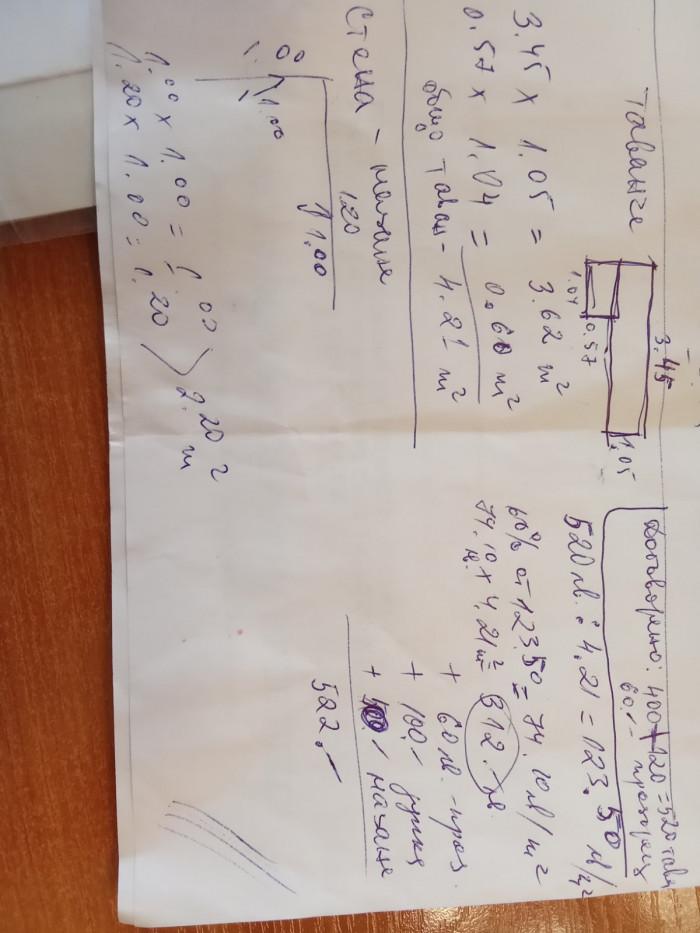 Таванче
3.45
1.05
1.04
0.57
3.45 x 1.05 = 3.62 m²
0.57 x 1.04 = 0.60 m²
общо таван - 4.21 m²
Стена - махане
1.20
1.00
1.00
1.00 x 1.00 = 1.00
1.20 x 1.00 = 1.20
2.20 m²
Договорено: 400 + 120 = 520 таван
60.- прозорец
520 лв. : 4.21 = 123.50 лв/m²
60% от 123.50 = 74.10 лв/m²
74.10 лв. x 4.21 m² = 312.- лв.
+ 60 лв. - проз.
+ 100.- дупка
+ 50.- махане
522.-